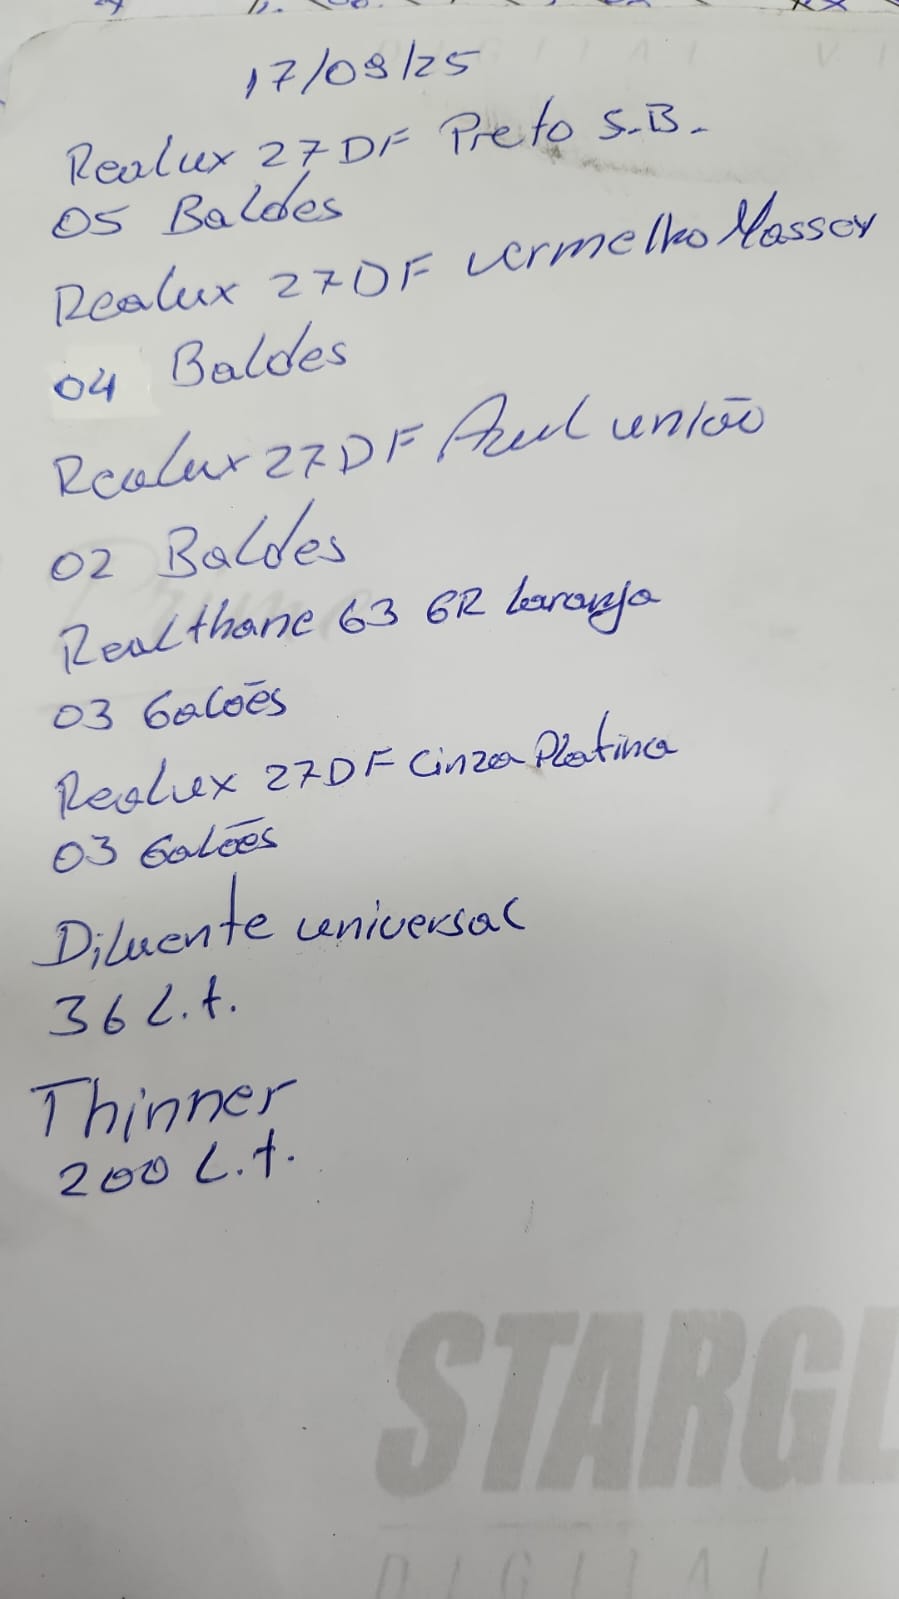 17/09/25
Realux 27DF Preto S.B.
05 Baldes
Realux 27DF vermelho Massey
04 Baldes
Realux 27DF Azul união
02 Baldes
Realthane 63 GR laranja
03 Galões
Realux 27DF Cinza Platina
03 Galões
Diluente universal
36 L.t.
Thinner
200 L.t.
STARGL
DIGITAL